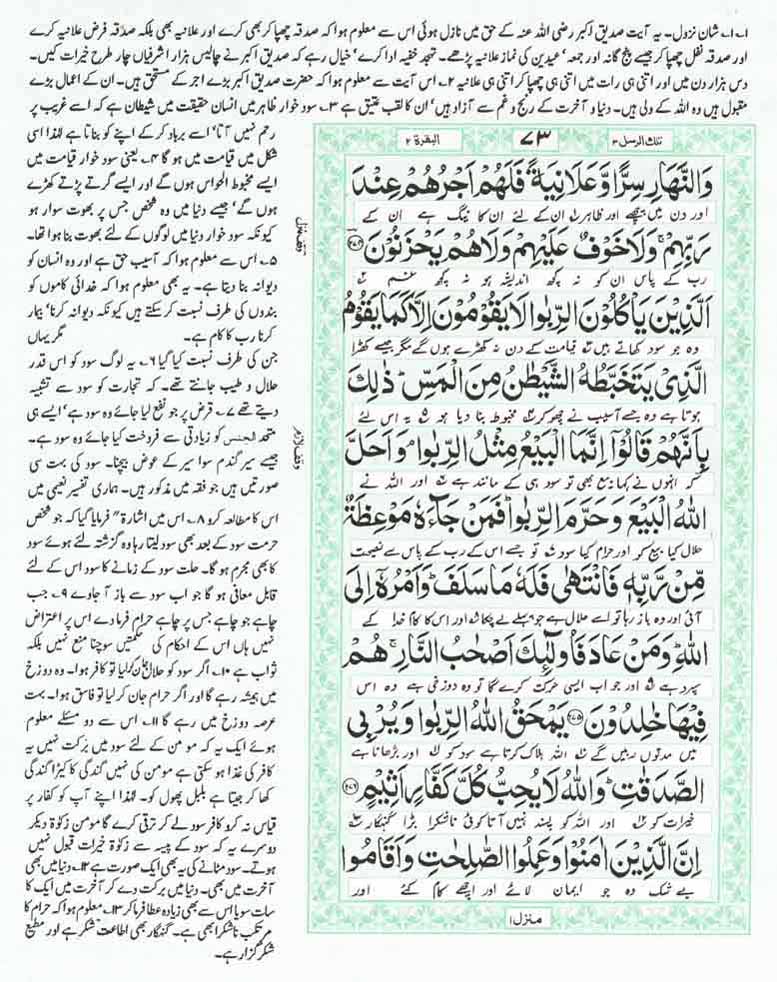 ۱۔ ۱۔ شان نزول۔ یہ آیت صدیق اکبر رضی اللہ عنہ کے حق میں نازل ہوئی اس سے معلوم ہوا کہ صدقہ چھپا کر بھی کرے اور علانیہ بھی بلکہ صدقہ فرض علانیہ کرے
اور صدقہ نفل چھپا کر جیسے پنج گانہ اور جمعہ' عیدین کی نماز علانیہ پڑھے۔ تہجد خفیہ ادا کرے' خیال رہے کہ صدیق اکبر نے چالیس ہزار اشرفیاں چار طرح خیرات کیں۔
دس ہزار دن میں اور اتنی ہی رات میں اتنی ہی چھپا کر اتنی ہی علانیہ ۲۔ اس آیت سے معلوم ہوا کہ حضرت صدیق اکبر بڑے اجر کے مستحق ہیں۔ ان کے اعمال بڑے
مقبول ہیں وہ اللہ کے ولی ہیں۔ دنیا و آخرت کے رنج و غم سے آزاد ہیں' ان کا لقب عتیق ہے ۳۔ سود خوار ظاہر میں انسان حقیقت میں شیطان ہے کہ اسے غریب پر
رحم نہیں آتا' اسے برباد کر کے اپنے کو بناتا ہے لہٰذا اسی
شکل میں قیامت میں ہو گا ۴۔ یعنی سود خوار قیامت میں
ایسے مخبوط الحواس ہوں گے اور ایسے گرتے پڑتے کھڑے
ہوں گے' جیسے دنیا میں وہ شخص جس پر بھوت سوار ہو
کیونکہ سود خوار دنیا میں لوگوں کے لئے بھوت بنا ہوا تھا۔
۵۔ اس سے معلوم ہوا کہ آسیب حق ہے اور وہ انسان کو
دیوانہ بنا دیتا ہے۔ یہ بھی معلوم ہوا کہ خدائی کاموں کو
بندوں کی طرف نسبت کر سکتے ہیں کیونکہ دیوانہ کرنا' بیمار
کرنا رب کا کام ہے۔ مگر یہاں
جن کی طرف نسبت کیا گیا ۶۔ یہ لوگ سود کو اس قدر
حلال و طیب جانتے تھے۔ کہ تجارت کو سود سے تشبیہ
دیتے تھے ۷۔ قرض پر جو نفع لیا جائے وہ سود ہے' ایسے ہی
متحد الجنس کو زیادتی سے فروخت کیا جائے وہ سود ہے۔
جیسے سیر گندم سوا سیر کے عوض بیچنا۔ سود کی بہت سی
صورتیں ہیں جو فقہ میں مذکور ہیں۔ ہماری تفسیر نعیمی میں
اس کا مطالعہ کرو ۸۔ اس میں اشارۃ" فرمایا گیا کہ جو شخص
حرمت سود کے بعد بھی سود لیتا رہا وہ گزشتہ لئے ہوئے سود
کا بھی مجرم ہو گا۔ حلت سود کے زمانے کا سود اس کے لئے
قابل معافی ہو گا جو اب سود سے باز آ جاوے ۹۔ جب
چاہے جو چاہے جس پر چاہے حرام فرما دے اس پر اعتراض
نہیں ہاں اس کے احکام کی حکمتیں سوچنا منع نہیں بلکہ
ثواب ہے ۱۰۔ اگر سود کو حلال جان کر لیا تو کافر ہوا۔ وہ دوزخ
میں ہمیشہ رہے گا اور اگر حرام جان کر لیا تو فاسق ہوا۔ بہت
عرصہ دوزخ میں رہے گا ۱۱۔ اس سے دو مسئلے معلوم
ہوئے ایک یہ کہ مومن کے لئے سود میں برکت نہیں یہ
کافر کی غذا ہو سکتی ہے مومن کی نہیں گندگی کا کیڑا گندگی
کھا کر جیتا ہے بلبل پھول کو۔ لہٰذا اپنے آپ کو کفار پر
قیاس نہ کرو کافر سود لے کر ترقی کرے گا مومن زکوٰۃ دیکر
دوسرے یہ کہ سود کے پیسہ سے زکوٰۃ خیرات قبول نہیں
ہوتے۔ سود مٹانے کی یہ بھی ایک صورت ہے ۱۲۔ دنیا میں بھی
آخرت میں بھی۔ دنیا میں برکت دے کر آخرت میں ایک کا
سات سو یا اس سے بھی زیادہ عطا فرما کر ۱۳۔ معلوم ہوا کہ حرام کا
مرتکب ناشکرا بھی ہے۔ گنہگار بھی اطاعت شکر ہے اور مطیع
شکر گزار ہے۔
تلك الرسل ۳ ۷۳ البقرة ۲
وَالنَّهَارِ سِرًّا وَّعَلَانِيَةً فَلَهُمْ اَجْرُهُمْ عِنْدَ
اور دن میں چھپے اور ظاہر ان کے لئے ان کا نیگ ہے ان کے
رَبِّهِمْ ۚ وَلَا خَوْفٌ عَلَيْهِمْ وَلَا هُمْ يَحْزَنُوْنَ ﴿۲۷۴﴾
رب کے پاس ان کو نہ کچھ اندیشہ ہو نہ کچھ غم
اَلَّذِيْنَ يَاْكُلُوْنَ الرِّبٰوا لَا يَقُوْمُوْنَ اِلَّا كَمَا يَقُوْمُ
وہ جو سود کھاتے ہیں قیامت کے دن نہ کھڑے ہوں گے مگر جیسے کھڑا
الَّذِيْ يَتَخَبَّطُهُ الشَّيْطٰنُ مِنَ الْمَسِّ ؕ ذٰلِكَ
ہوتا ہے وہ جسے آسیب نے چھو کر مخبوط بنا دیا ہو یہ اس لئے
بِاَنَّهُمْ قَالُوْٓا اِنَّمَا الْبَيْعُ مِثْلُ الرِّبٰوا ۘ وَاَحَلَّ
کہ انہوں نے کہا بیع بھی تو سود ہی کے مانند ہے اور اللہ نے
اللّٰهُ الْبَيْعَ وَحَرَّمَ الرِّبٰوا ؕ فَمَنْ جَآءَهٗ مَوْعِظَةٌ
حلال کیا بیع کو اور حرام کیا سود تو جسے اس کے رب کے پاس سے نصیحت
مِّنْ رَّبِّهٖ فَانْتَهٰى فَلَهٗ مَا سَلَفَ ؕ وَاَمْرُهٗٓ اِلَى
آئی اور وہ باز رہا تو اسے حلال ہے جو پہلے لے چکا اور اس کا کام خدا کے
اللّٰهِ ؕ وَمَنْ عَادَ فَاُولٰٓئِكَ اَصْحٰبُ النَّارِ ۚ هُمْ
سپرد ہے اور جو اب ایسی حرکت کرے گا تو وہ دوزخی ہے وہ اس
فِيْهَا خٰلِدُوْنَ ﴿۲۷۵﴾ يَمْحَقُ اللّٰهُ الرِّبٰوا وَيُرْبِي
میں مدتوں رہیں گے اللہ ہلاک کرتا ہے سود کو اور بڑھاتا ہے
الصَّدَقٰتِ ؕ وَاللّٰهُ لَا يُحِبُّ كُلَّ كَفَّارٍ اَثِيْمٍ ﴿۲۷۶﴾
خیرات کو اور اللہ کو پسند نہیں آتا کوئی ناشکرا بڑا گنہگار
اِنَّ الَّذِيْنَ اٰمَنُوْا وَعَمِلُوا الصّٰلِحٰتِ وَاَقَامُوا
بے شک وہ جو ایمان لائے اور اچھے کام کئے اور
منزل ۱
وقف لازم